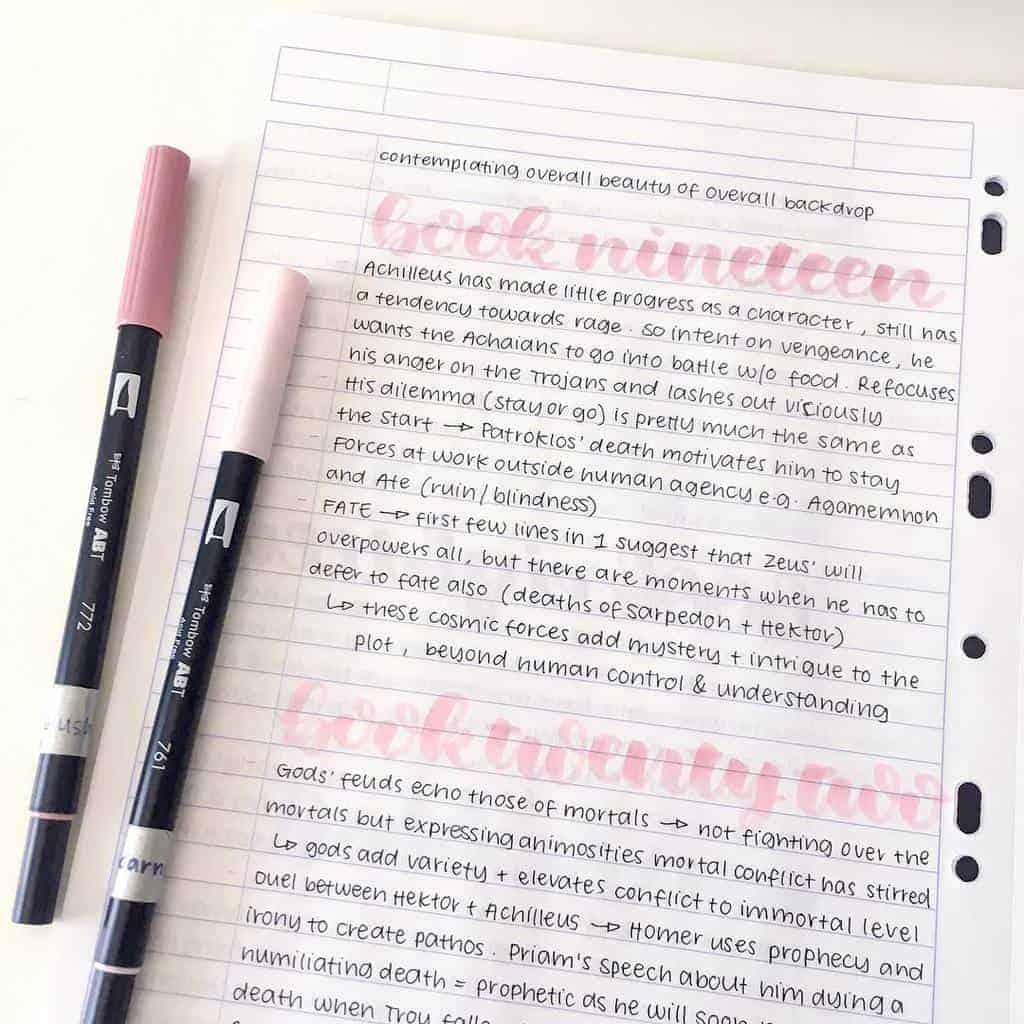 contemplating overall beauty of overall backdrop
book nineteen
Achilleus has made little progress as a character, still has
a tendency towards rage. So intent on vengeance, he
wants the Achaians to go into battle w/o food. Refocuses
his anger on the Trojans and lashes out viciously
His dilemma (stay or go) is pretty much the same as
the start → Patroklos' death motivates him to stay
Forces at work outside human agency e.g. Agamemnon
and Ate (ruin/blindness)
FATE → first few lines in 1 suggest that Zeus' will
overpowers all, but there are moments when he has to
defer to fate also (deaths of Sarpedon + Hektor)
↳ these cosmic forces add mystery + intrigue to the
plot, beyond human control & understanding
book twenty two
Gods' feuds echo those of mortals → not fighting over the
mortals but expressing animosities mortal conflict has stirred
↳ gods add variety + elevates conflict to immortal level
Duel between Hektor + Achilleus → Homer uses prophecy and
irony to create pathos. Priam's speech about him dying a
humiliating death = prophetic as he will soon
death when Troy
Tombow ABT
Acid Free
772
Tombow ABT
Acid Free
761